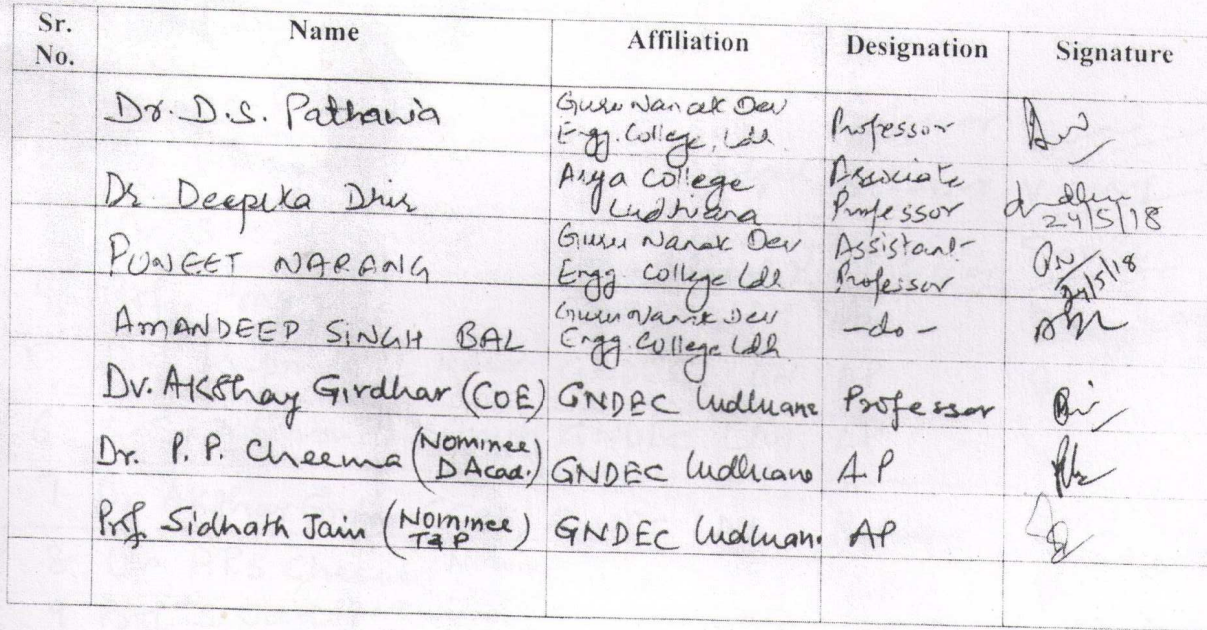 Sr. No. Name Affiliation Designation Signature
Dr. D.S. Pathania Guru Nanak Dev Engg. College, Ldh. Professor
Dr. Deepika Dhir Arya College Ludhiana Associate Professor 24/5/18
PUNEET NARANG Guru Nanak Dev Engg College Ldh Assistant Professor 24/5/18
AMANDEEP SINGH BAL Guru Nanak Dev Engg. College Ldh -do-
Dr. AKShay Girdhar (COE) GNDEC Ludhiana Professor
Dr. P. P. Cheema (Nominee D Acad.) GNDEC Ludhiana A.P
Prof. Sidhath Jain (Nominee T&P) GNDEC Ludhiana AP